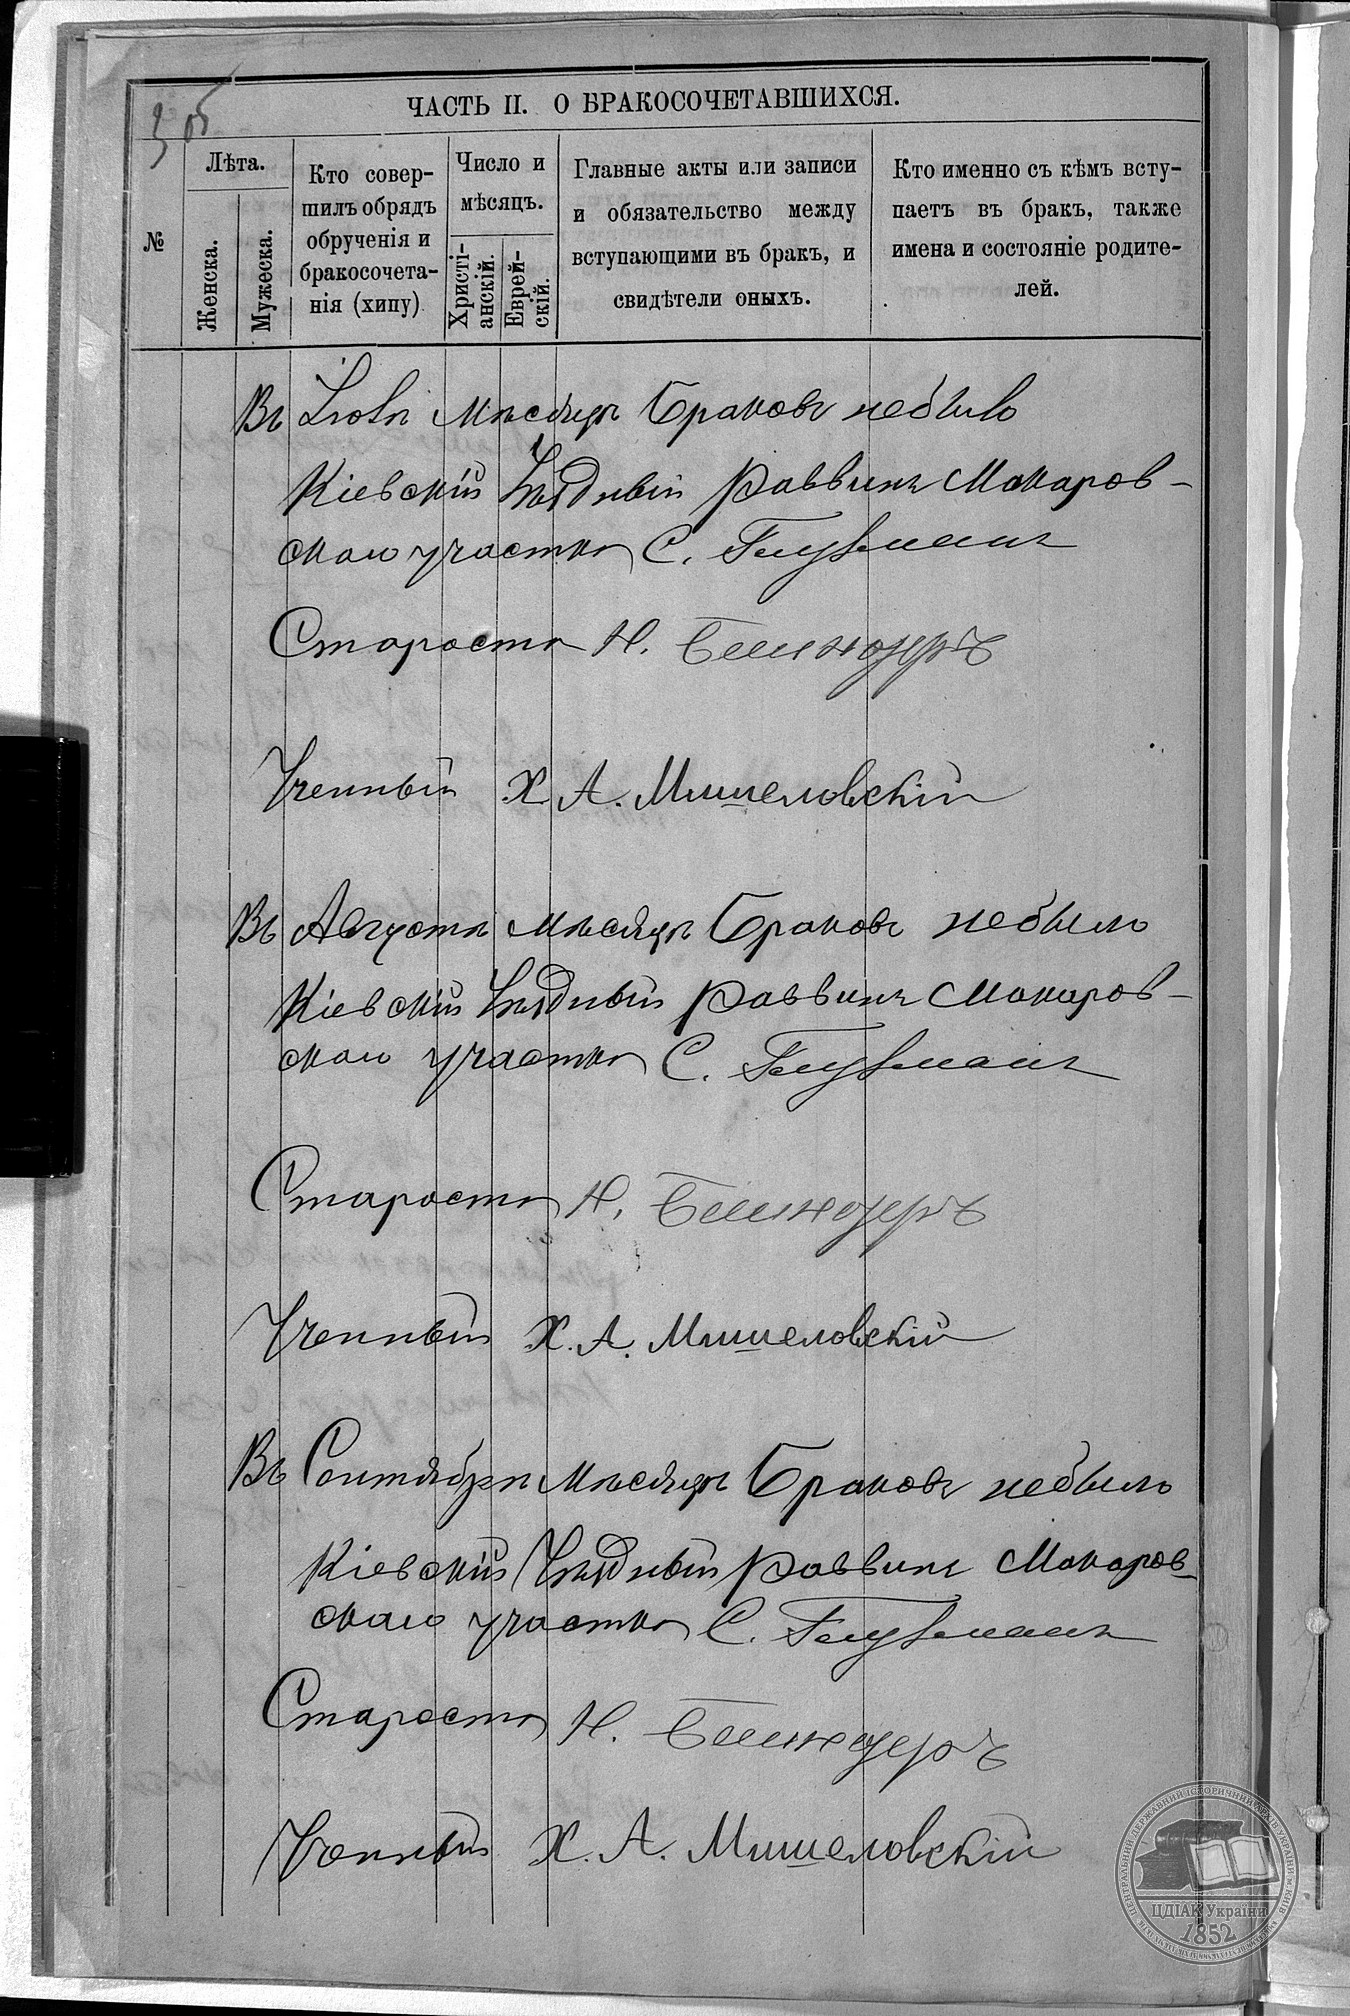 3 об
ЧАСТЬ II. О БРАКОСОЧЕТАВШИХСЯ.
№
Лѣта.
Женска.
Мужеска.
Кто совер-
шилъ обрядъ
обрученія и
бракосочета-
нія (хипу)
Число и
мѣсяцъ.
Христі-
анскій.
Еврей-
скій.
Главные акты или записи
и обязательство между
вступающими въ бракъ, и
свидѣтели оныхъ.
Кто именно съ кѣмъ всту-
паетъ въ бракъ, также
имена и состояніе родите-
лей.
Въ Іюлѣ Мѣсяцѣ Браковъ небыло
Кіевскій Уѣздный Раввинъ Макаров-
скаго участка С.
Староста Н.
Ученный Х. А. Мишеловскій
Въ Августѣ Мѣсяцѣ Браковъ небыло
Кіевскій Уѣздный Раввинъ Макаров-
скаго участка С.
Староста Н.
Ученный Х. А. Мишеловскій
Въ Сентябрѣ Мѣсяцѣ Браковъ небыло
Кіевскій Уѣздный Раввинъ Макаров-
скаго участка С.
Староста Н.
Ученный Х. А. Мишеловскій
ЦДІАК України
1852